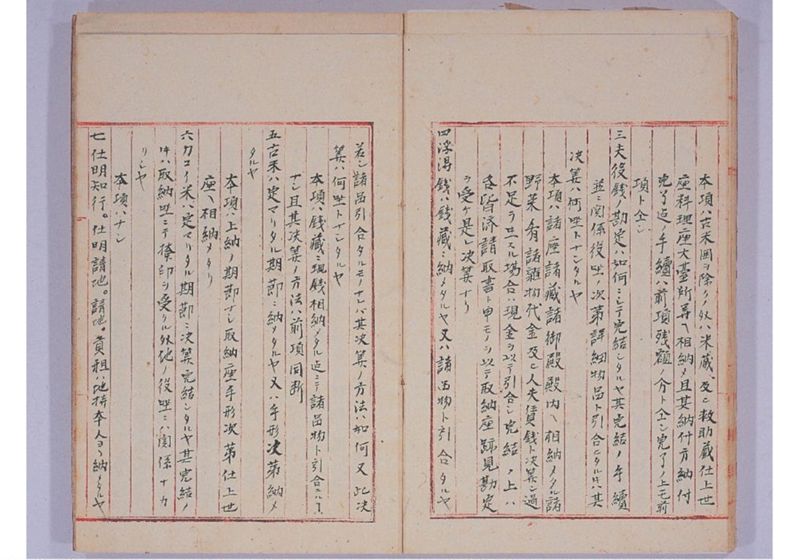 本項ハ古米囲ヲ除クノ外ハ米蔵、及ヒ救助蔵仕上世
座料理座大臺所等ヘ相納メ且其納付方納付
完了迄ノ手續ハ前項残額ノ分ト仝シ完了ノ上モ前
項ト仝シ
三夫役銭ノ勘定ハ如何ニシテ完結シタルヤ其完結ノ手續
並ニ関係役場ノ次第詳細物品ト引合ニタル時ハ其
決算ハ何座トナシタルヤ
本項ハ諸座諸蔵諸御殿殿内ヘ相納メタル諸
野菜肴諸雑物代金及ヒ人夫賃銭ト决算シ過
不足ヲ生スル場合ハ現金ヲ以テ引合シ完結ノ上ハ
各皆済請取書ト申モノヲ以テ取納座跡見勘定
ヲ受ケ是レ决算ナリ
四浮得銭ハ銭蔵ニ納メタルヤ又ハ諸品物ト引合タルヤ
若シ諸品引合タルモノナレハ其决算ノ方法ハ如何又此决
算ハ何座トナシタルヤ
本項ハ銭蔵ニ現銭相納メタル迄ニテ諸品物ト引合ニ
ナシ且其决算ノ方法ハ前項同断
五古米ハ定マリタル期節ニ納メタルヤ又ハ手形次第納メ
タルヤ
本項ハ上納ノ期節ナシ取納座手形次第仕上世
座ヘ相納メタリ
六カコイ米ハ定マリタル期節ニ决算完結シタルヤ其完結ノ
時ハ取納座ニテ捺印ヲ受クル外他ノ役座ニハ関係ナカ
リシヤ
本項ハナシ
七仕明知行。仕明請地。請地。貢租ハ地持本人ヨリ納メタルヤ